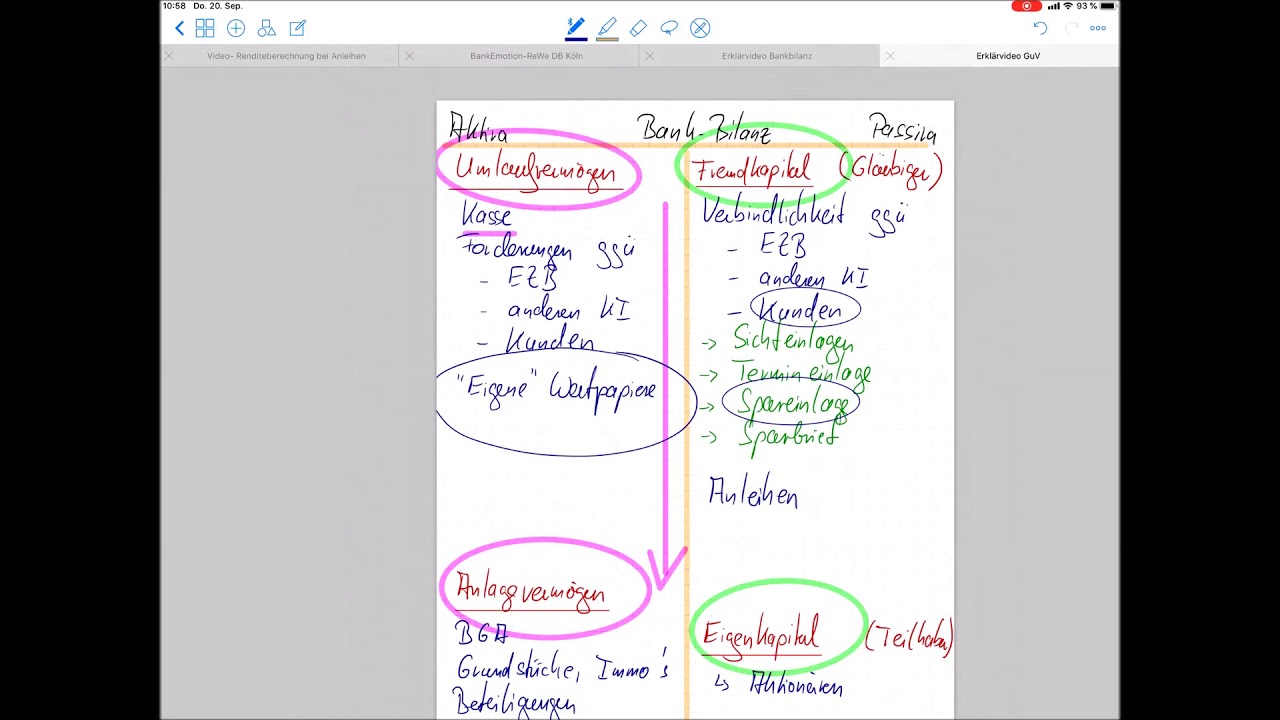 10:58 Do. 20. Sep.
93 %
Video- Renditeberechnung bei Anleihen
BankEmotion-ReWe DB Köln
Erklärvideo Bankbilanz
Erklärvideo GuV
Aktiva Bank-Bilanz Passiva
Umlaufvermögen
Kasse
Forderungen ggü
- EZB
- anderen KI
- Kunden
"Eigene" Wertpapiere
Anlagevermögen
BGA
Grundstücke, Immo's
Beteiligungen
Fremdkapital (Gläubiger)
Verbindlichkeit ggü
- EZB
- anderen KI
- Kunden
-> Sichteinlagen
-> Termineinlage
-> Spareinlage
-> Sparbrief
Anleihen
Eigenkapital (Teilhaber)
↳ Aktionären